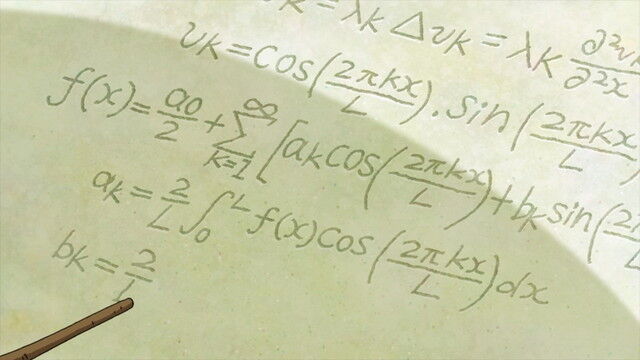 = λk Δvk = λk ∂²vk/∂²x
vk = cos(2πkx/L), sin(2πkx/L
f(x) = a0/2 + ∑ k=1 ∞ [ak cos(2πkx/L) + bk sin(2π
ak = 2/L ∫0 L f(x) cos(2πkx/L) dx
bk = 2/L